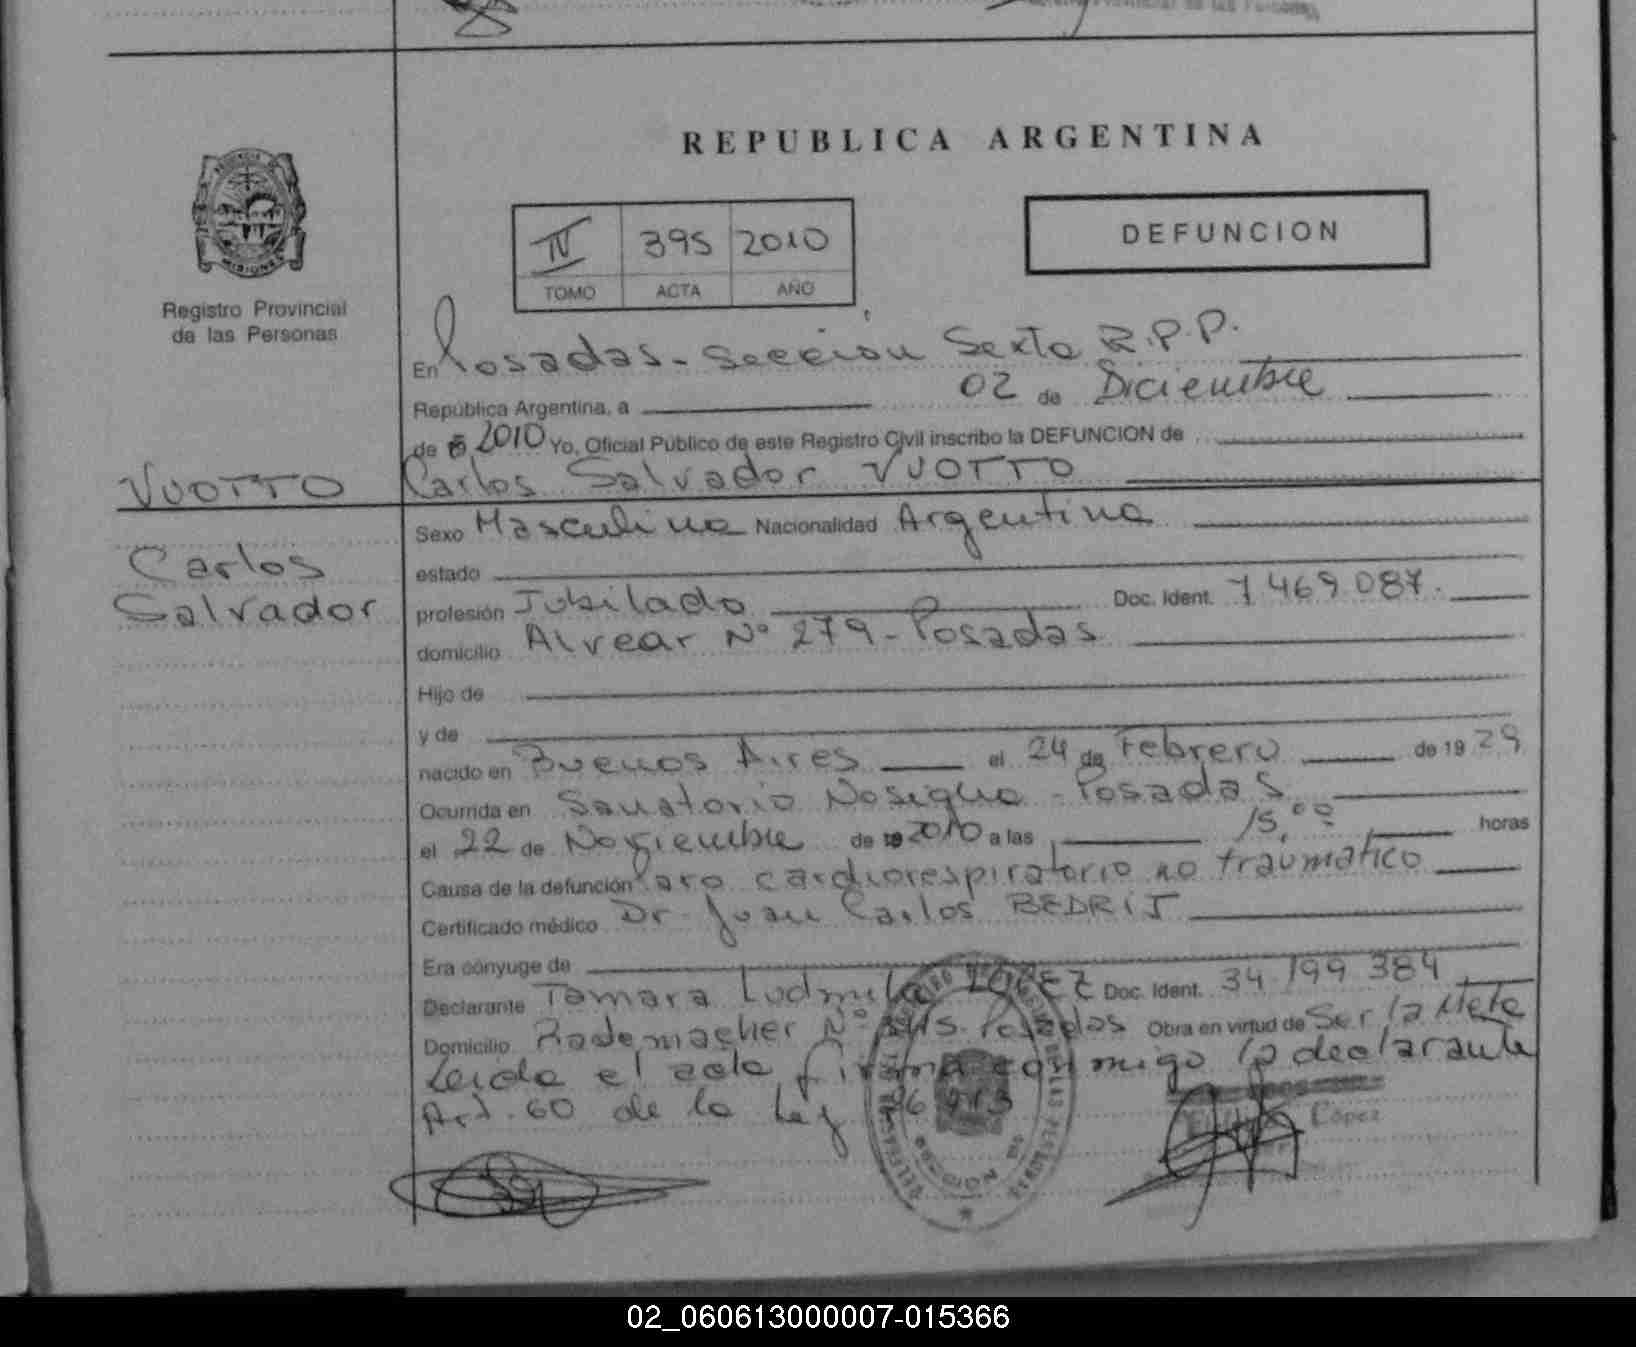 REPUBLICA ARGENTINA
IV 395 2010
TOMO ACTA AÑO
DEFUNCION
MISIONES
Registro Provincial
de las Personas
En Posadas - Sección Sexta R.P.P.
República Argentina, a 02 de Diciembre
de 2010 Yo, Oficial Público de este Registro Civil inscribo la DEFUNCION de
VUOTTO
Carlos Salvador VUOTTO
Carlos
Salvador
Sexo Masculino Nacionalidad Argentina
estado
profesión Jubilado Doc. Ident. 7469.087.
domicilio Alvear Nº 279 - Posadas
Hijo de
y de
nacido en Buenos Aires el 24 de Febrero de 1929
Ocurrida en Sanatorio Nosiglia - Posadas
el 22 de Noviembre de 2010 a las 15,00 horas
Causa de la defunción Paro cardiorespiratorio no traumático
Certificado médico Dr. Juan Carlos BEDRIJ
Era cónyuge de
Declarante Tamara Ludmila LOPEZ Doc. Ident. 34 199 384
Domicilio Rademacher Nº Posadas Obra en virtud de Ser la Nieta
Leida el acta, firma conmigo la declarante
Art. 60 de la Ley
López
02_060613000007-015366